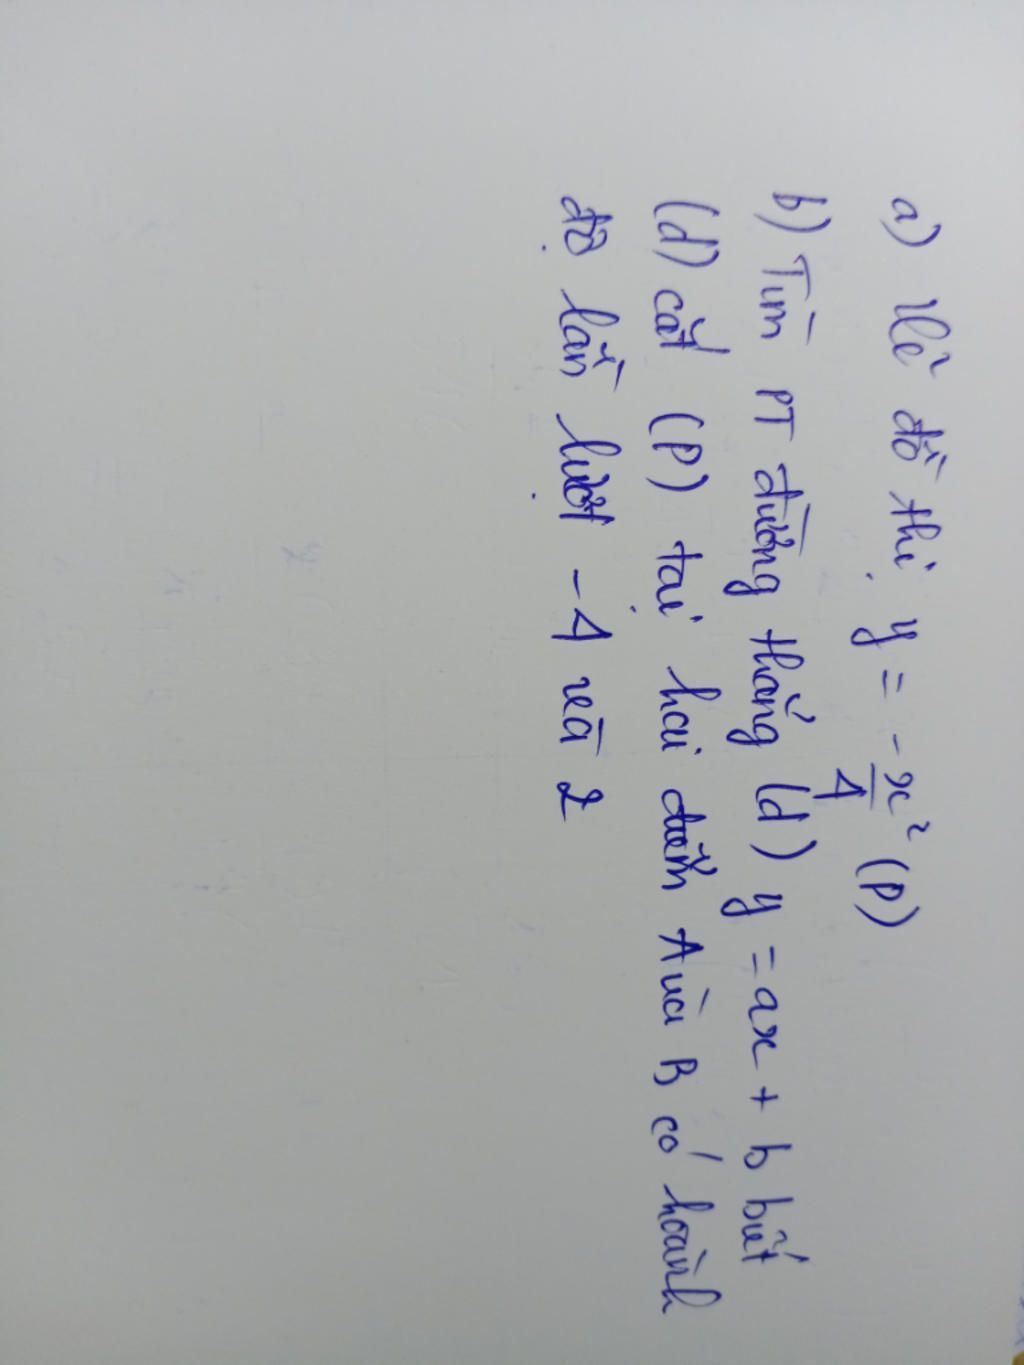 a) Vẽ đồ thị y = -x²/4 (P)
b) Tìm PT đường thẳng (d) y = ax + b biết
(d) cắt (P) tại hai điểm A và B có hoành
độ lần lượt -4 và 2